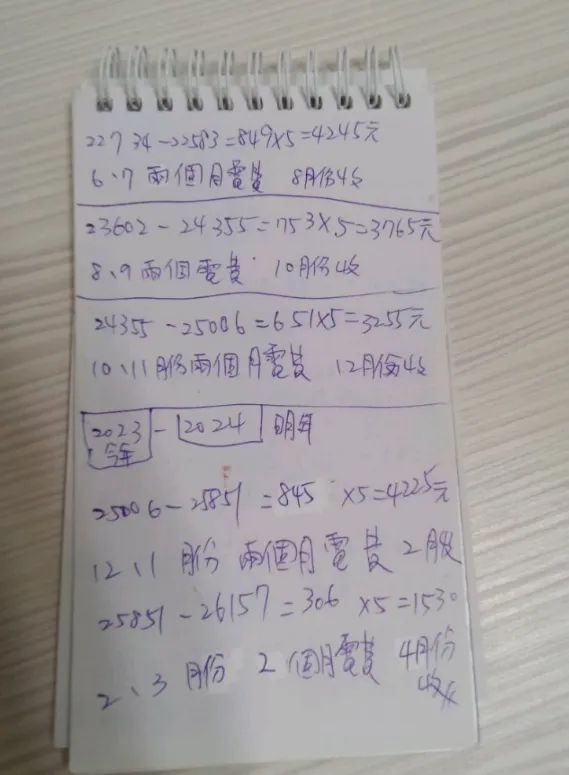 22734-22583=849×5=4245元
6、7 兩個月電費 8月份收
23602-24355=753×5=3765元
8、9 兩個電費 10月份收
24355-25006=651×5=3255元
10、11月份兩個月電費 12月份收
2023-2024 明年
今年
25006-25851=845 ×5=4225元
12、1 月份 兩個月電費 2月收
25851-26157=306 ×5=1530
2、3 月份 2個月電費 4月份
收